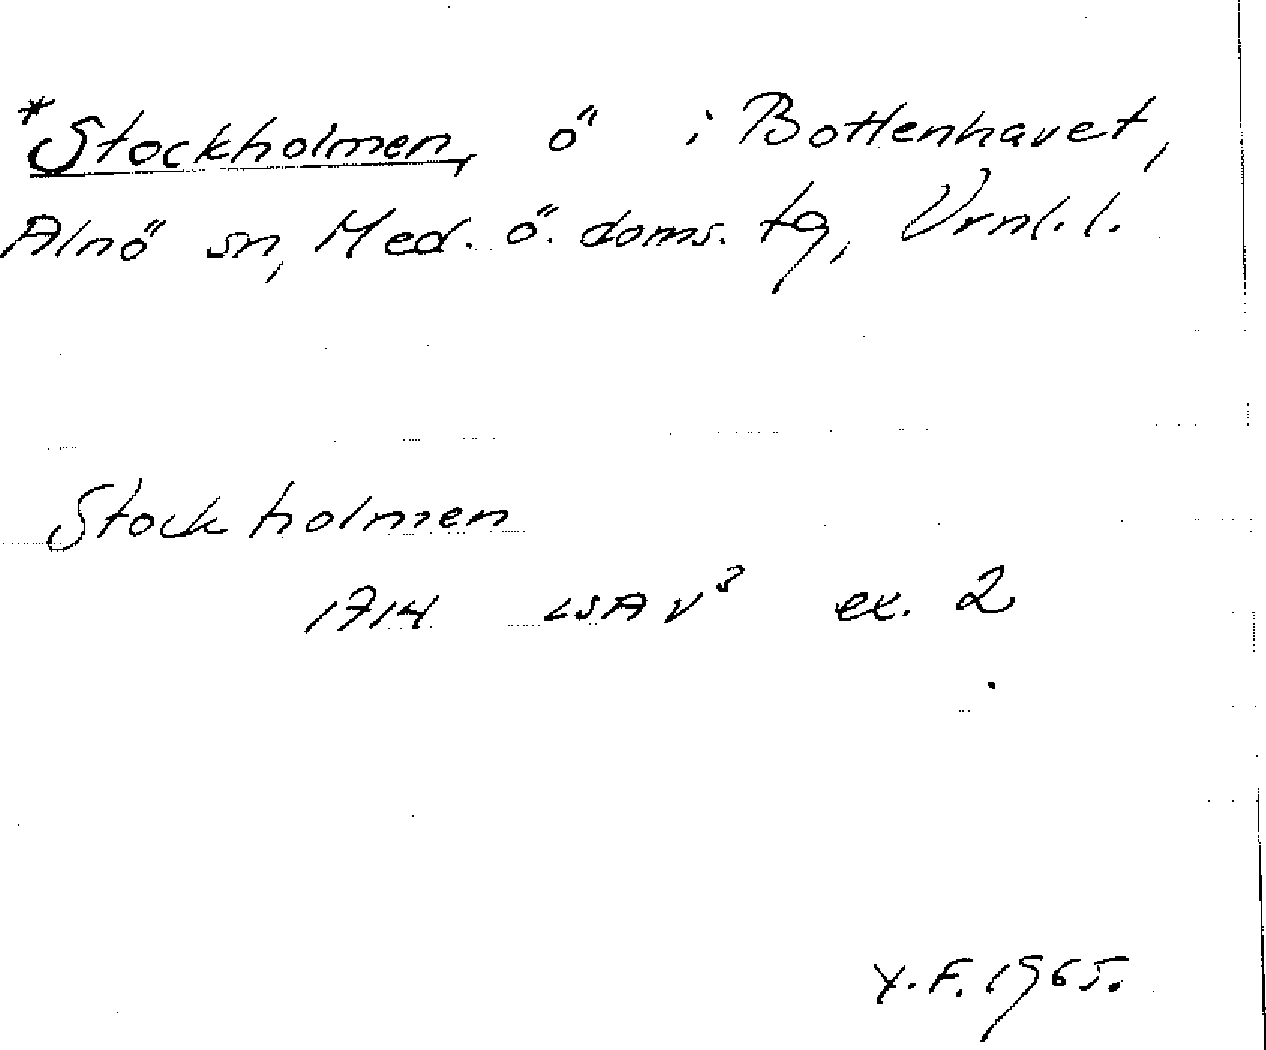 *Stockholmen, ö i Bottenhavet,
Alnö sn, Med. ö. doms. tg, Vrnl. l.
Stockholmen
1714 LSA V³ ex. 2
Y.F. 1965.